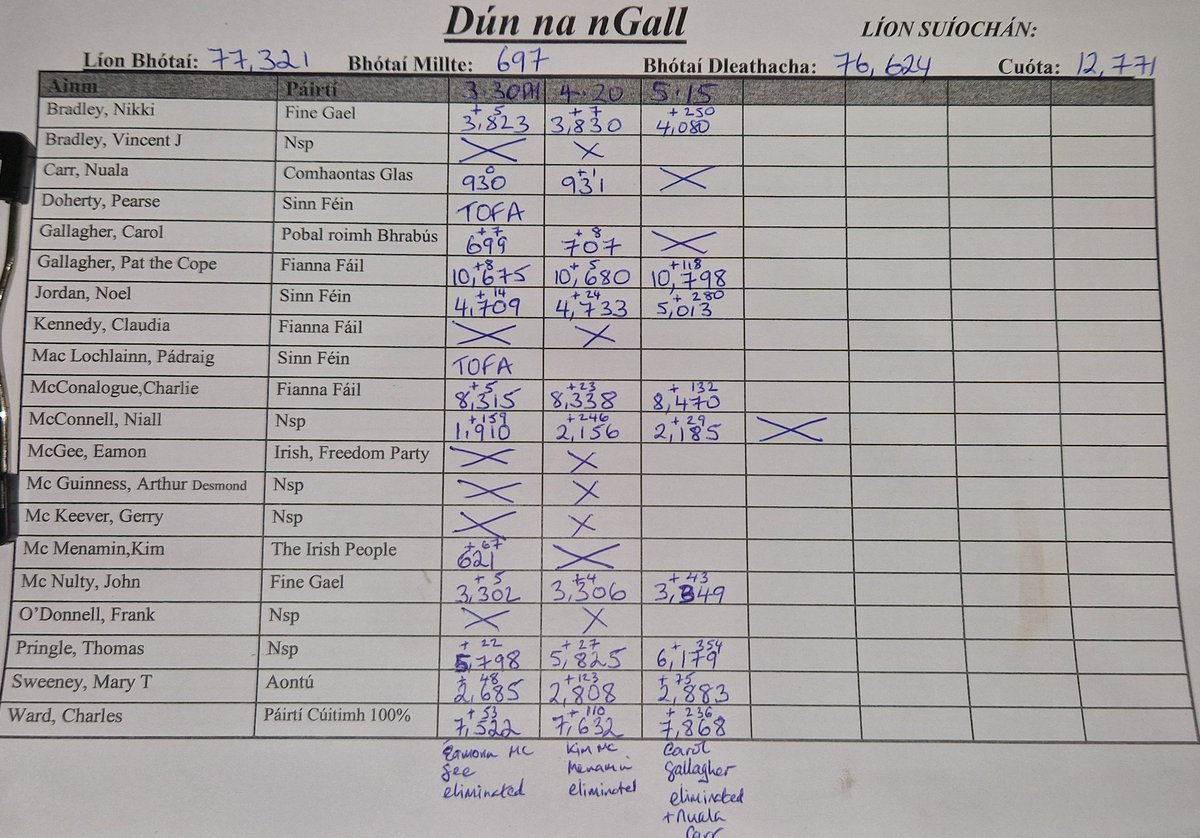 Dún na nGall
LÍON SUÍOCHÁN:
Líon Bhótaí: 77,321 Bhótaí Millte: 697 Bhótaí Dleathacha: 76,624 Cuóta: 12,771
Ainm Páirtí 3.30 4.20 5.15
Bradley, Nikki Fine Gael +5 3,823 +7 3,830 +250 4,080
Bradley, Vincent J Nsp X X
Carr, Nuala Comhaontas Glas 0 930 +1 931 X
Doherty, Pearse Sinn Féin TOFA
Gallagher, Carol Pobal roimh Bhrabús +7 699 +8 707 X
Gallagher, Pat the Cope Fianna Fáil +8 10,675 +5 10,680 +118 10,798
Jordan, Noel Sinn Féin +14 4,709 +24 4,733 +280 5,013
Kennedy, Claudia Fianna Fáil X X
Mac Lochlainn, Pádraig Sinn Féin TOFA
McConalogue,Charlie Fianna Fáil +5 8,315 +23 8,338 +132 8,470
McConnell, Niall Nsp +159 1,910 +246 2,156 +29 2,185 X
McGee, Eamon Irish, Freedom Party X X
Mc Guinness, Arthur Desmond Nsp X X
Mc Keever, Gerry Nsp X X
Mc Menamin,Kim The Irish People +67 621 X
Mc Nulty, John Fine Gael +5 3,302 +4 3,306 +43 3,349
O'Donnell, Frank Nsp X X
Pringle, Thomas Nsp +22 5,798 +27 5,825 +354 6,179
Sweeney, Mary T Aontú +48 2,685 +123 2,808 +75 2,883
Ward, Charles Páirtí Cúitimh 100% +53 7,522 +110 7,632 +236 7,868
Eamonn Mc
Gee
eliminated
Kim Mc
Menamin
eliminated
Carol
Gallagher
eliminated
+ Nuala
Carr